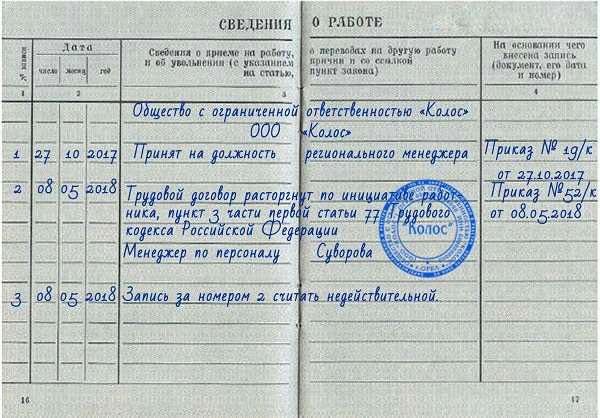 СВЕДЕНИЯ О РАБОТЕ
№ записи
Дата
Сведения о приеме на работу, о переводах на другую работу
и об увольнении (с указанием причин и со ссылкой
на статью, пункт закона)
На основании чего
внесена запись
(документ, его дата
и номер)
число месяц год
1 2 3 4
Общество с ограниченной ответственностью «Колос»
ООО «Колос»
1 27 10 2017 Принят на должность регионального менеджера Приказ № 19/к
от 27.10.2017
2 08 05 2018 Трудовой договор расторгнут по инициативе работ- Приказ №52/к
ника, пункт 3 части первой статьи 77 Трудового от 08.05.2018
кодекса Российской Федерации
Менеджер по персоналу Суворова
"Колос"
г. ОРЕЛ
3 08 05 2018 Запись за номером 2 считать недействительной.
16 17